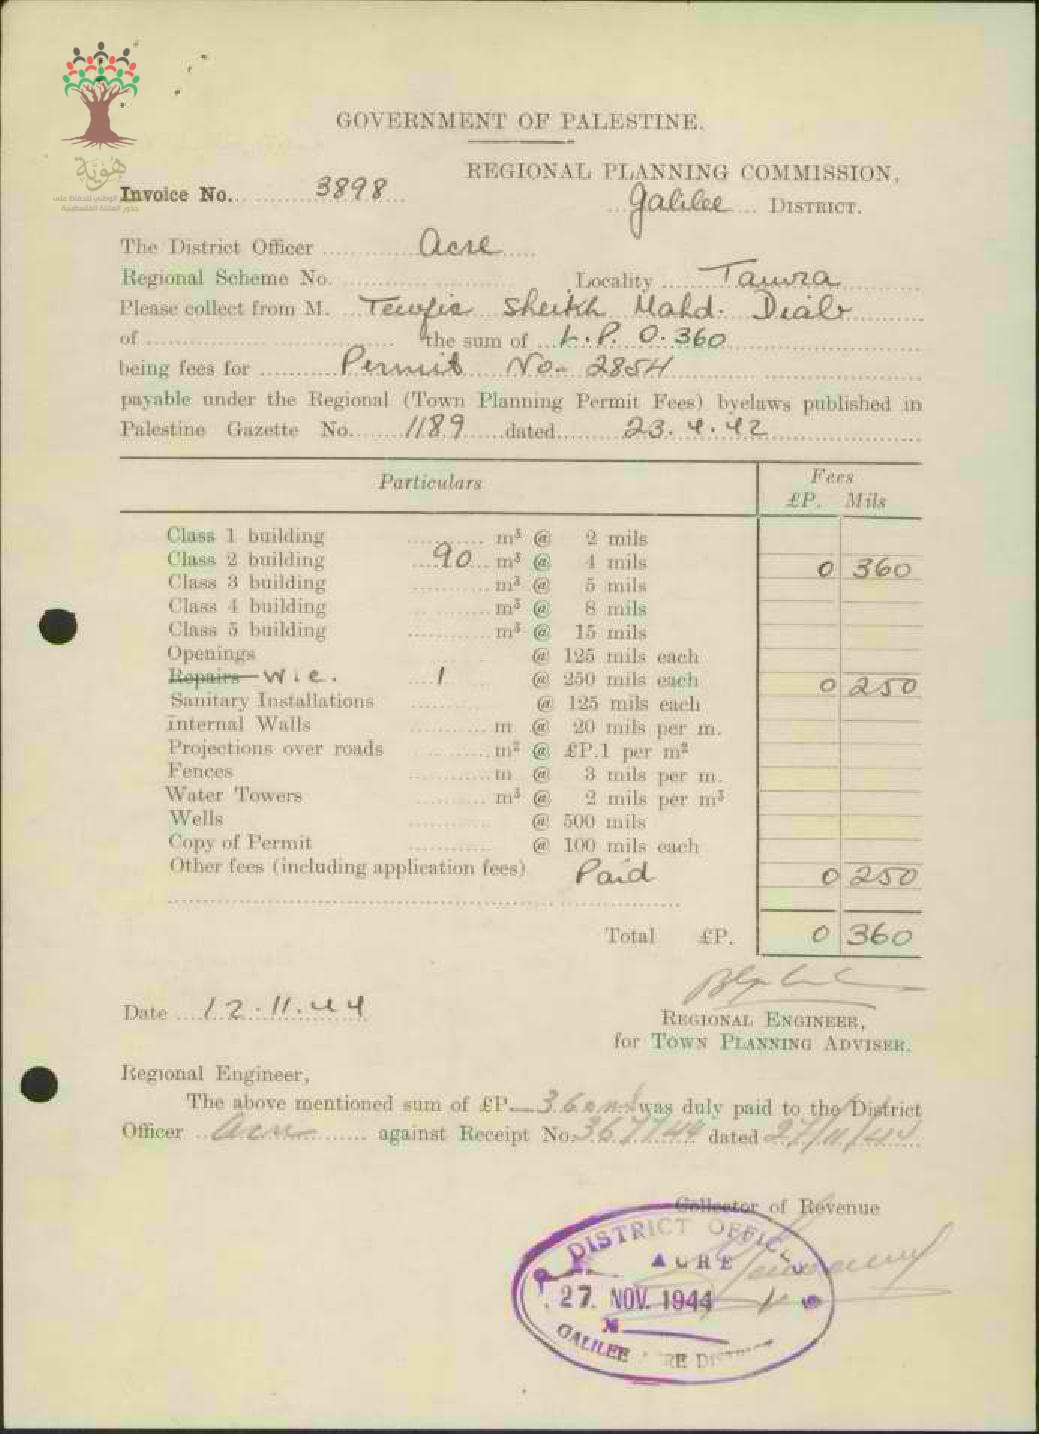 GOVERNMENT OF PALESTINE.
REGIONAL PLANNING COMMISSION,
هُويّة
الوطني للحفاظ على
جذور العائلة الفلسطينية
Invoice No. 3898
Galilee DISTRICT.
The District Officer Acre
Regional Scheme No. Locality Tamra
Please collect from M. Tewfic Sheikh Mahd. Diab
of the sum of L.P. 0.360
being fees for Permit No- 2854
payable under the Regional (Town Planning Permit Fees) byelaws published in
Palestine Gazette No. 1189 dated 23.4.42
Particulars Fees
£P. Mils
Class 1 building m³ @ 2 mils
Class 2 building 90 m³ @ 4 mils 0 360
Class 3 building m³ @ 5 mils
Class 4 building m³ @ 8 mils
Class 5 building m³ @ 15 mils
Openings @ 125 mils each
Repairs W.C. 1 @ 250 mils each 0 250
Sanitary Installations @ 125 mils each
Internal Walls m @ 20 mils per m.
Projections over roads m² @ £P.1 per m²
Fences m @ 3 mils per m.
Water Towers m³ @ 2 mils per m³
Wells @ 500 mils
Copy of Permit @ 100 mils each
Other fees (including application fees) Paid 0 250
Total £P. 0 360
Date 12.11.44
REGIONAL ENGINEER,
for TOWN PLANNING ADVISER.
Regional Engineer,
The above mentioned sum of £P. 360 mls was duly paid to the District
Officer Acre against Receipt No. 367749 dated 27/11/44
Collector of Revenue
DISTRICT OFFICE
ACRE
27. NOV. 1944
GALILEE DISTRICT